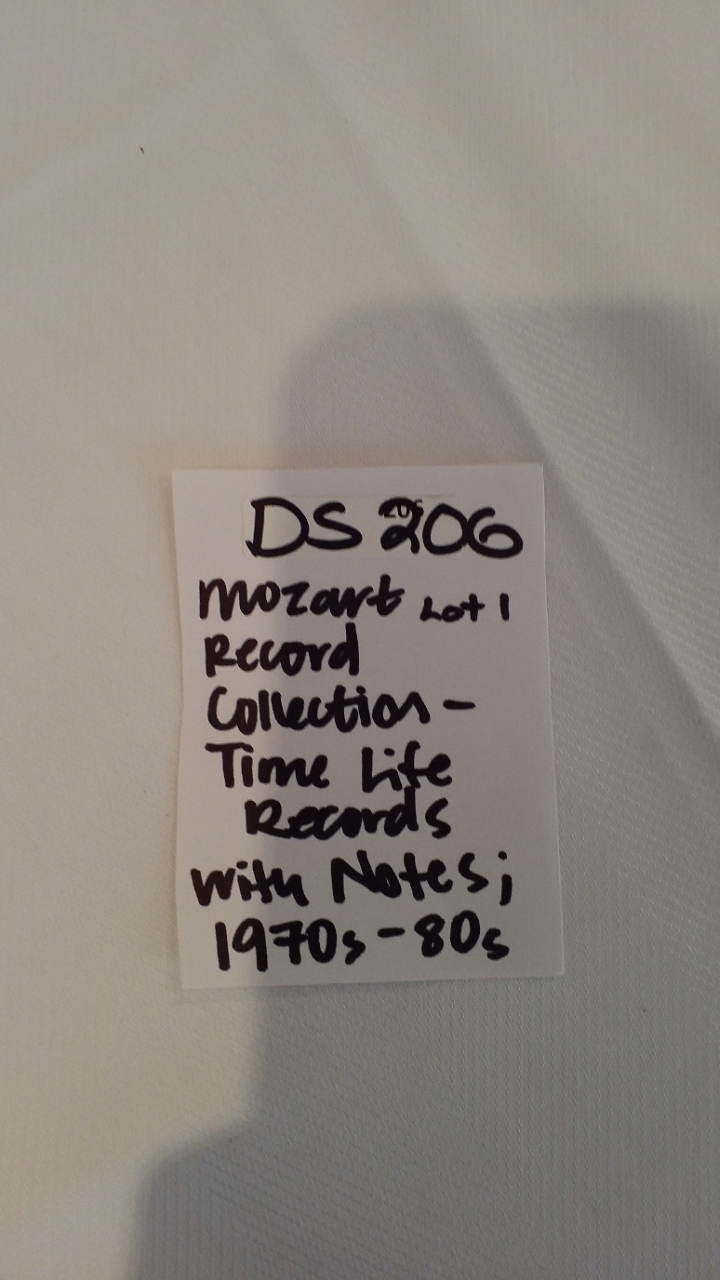 DS 206
Mozart Lot 1
Record
Collection -
Time Life
Records
with Notes;
1970s - 80s